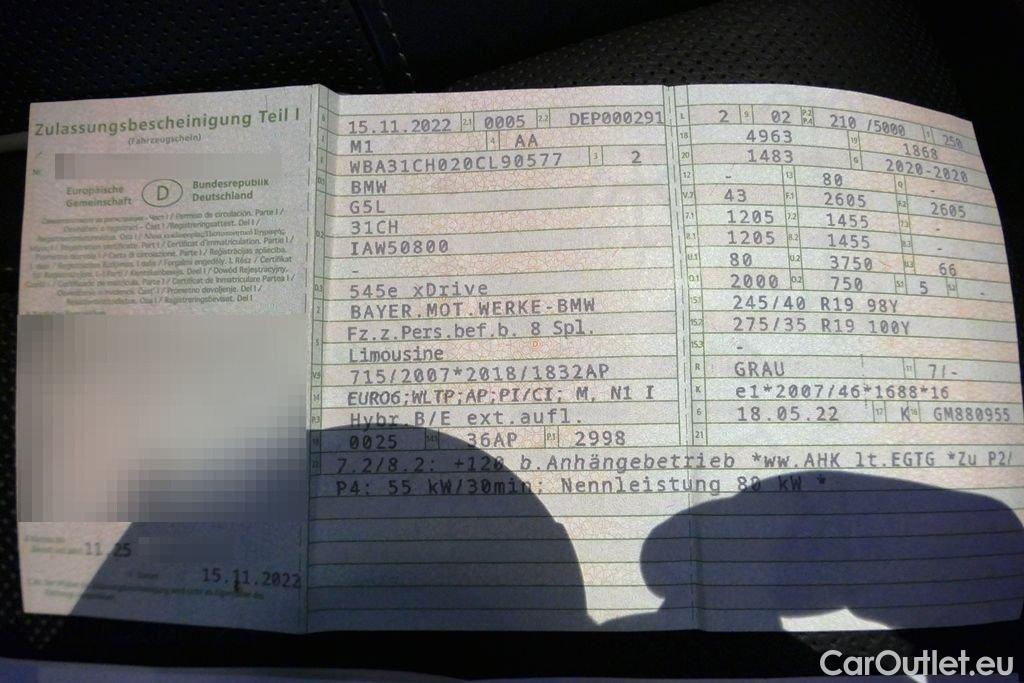 Zulassungsbescheinigung Teil I
(Fahrzeugschein)
Nr.
Europäische Gemeinschaft
D
Bundesrepublik Deutschland
11 25
15.11.2022
B 15.11.2022 2.1 0005 2.2 DEP000291
J M1 4 AA
E WBA31CH020CL90577 3 2
D.1 BMW
G5L
D.2 31CH
IAW50800
-
D.3 545e xDrive
2 BAYER.MOT.WERKE-BMW
5 Fz.z.Pers.bef.b. 8 Spl.
Limousine
V.9 715/2007*2018/1832AP
14 EURO6;WLTP;AP;PI/CI; M, N1 I
P.3 Hybr.B/E ext.aufl.
10 0025 14.1 36AP P.1 2998
L 2 9 02 P.2 P.4 210 /5000 T 250
18 4963 19 1868
20 1483 G 2020-2020
12 - 13 80 Q -
V.7 43 F.1 2605 F.2 2605
7.1 1205 7.2 1455 7.3 -
8.1 1205 8.2 1455 8.3 -
U.1 80 U.2 3750 U.3 66
O.1 2000 O.2 750 S.1 5 S.2 -
15.1 245/40 R19 98Y
15.2 275/35 R19 100Y
15.3 -
R GRAU 11 7/-
K e1*2007/46*1688*16
6 18.05.22 17 K 16 GM880955
21
22 7.2/8.2: +120 b.Anhängebetrieb *ww.AHK lt.EGTG *Zu P2/
P4: 55 kW/30min; Nennleistung 80 kW *
CarOutlet.eu